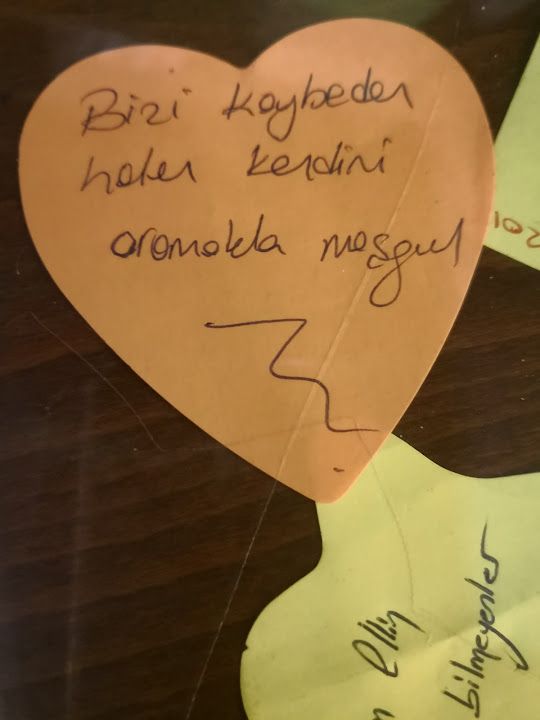 Bizi kaybeden
halen kendini
aramakla meşgul
bilmeyenler